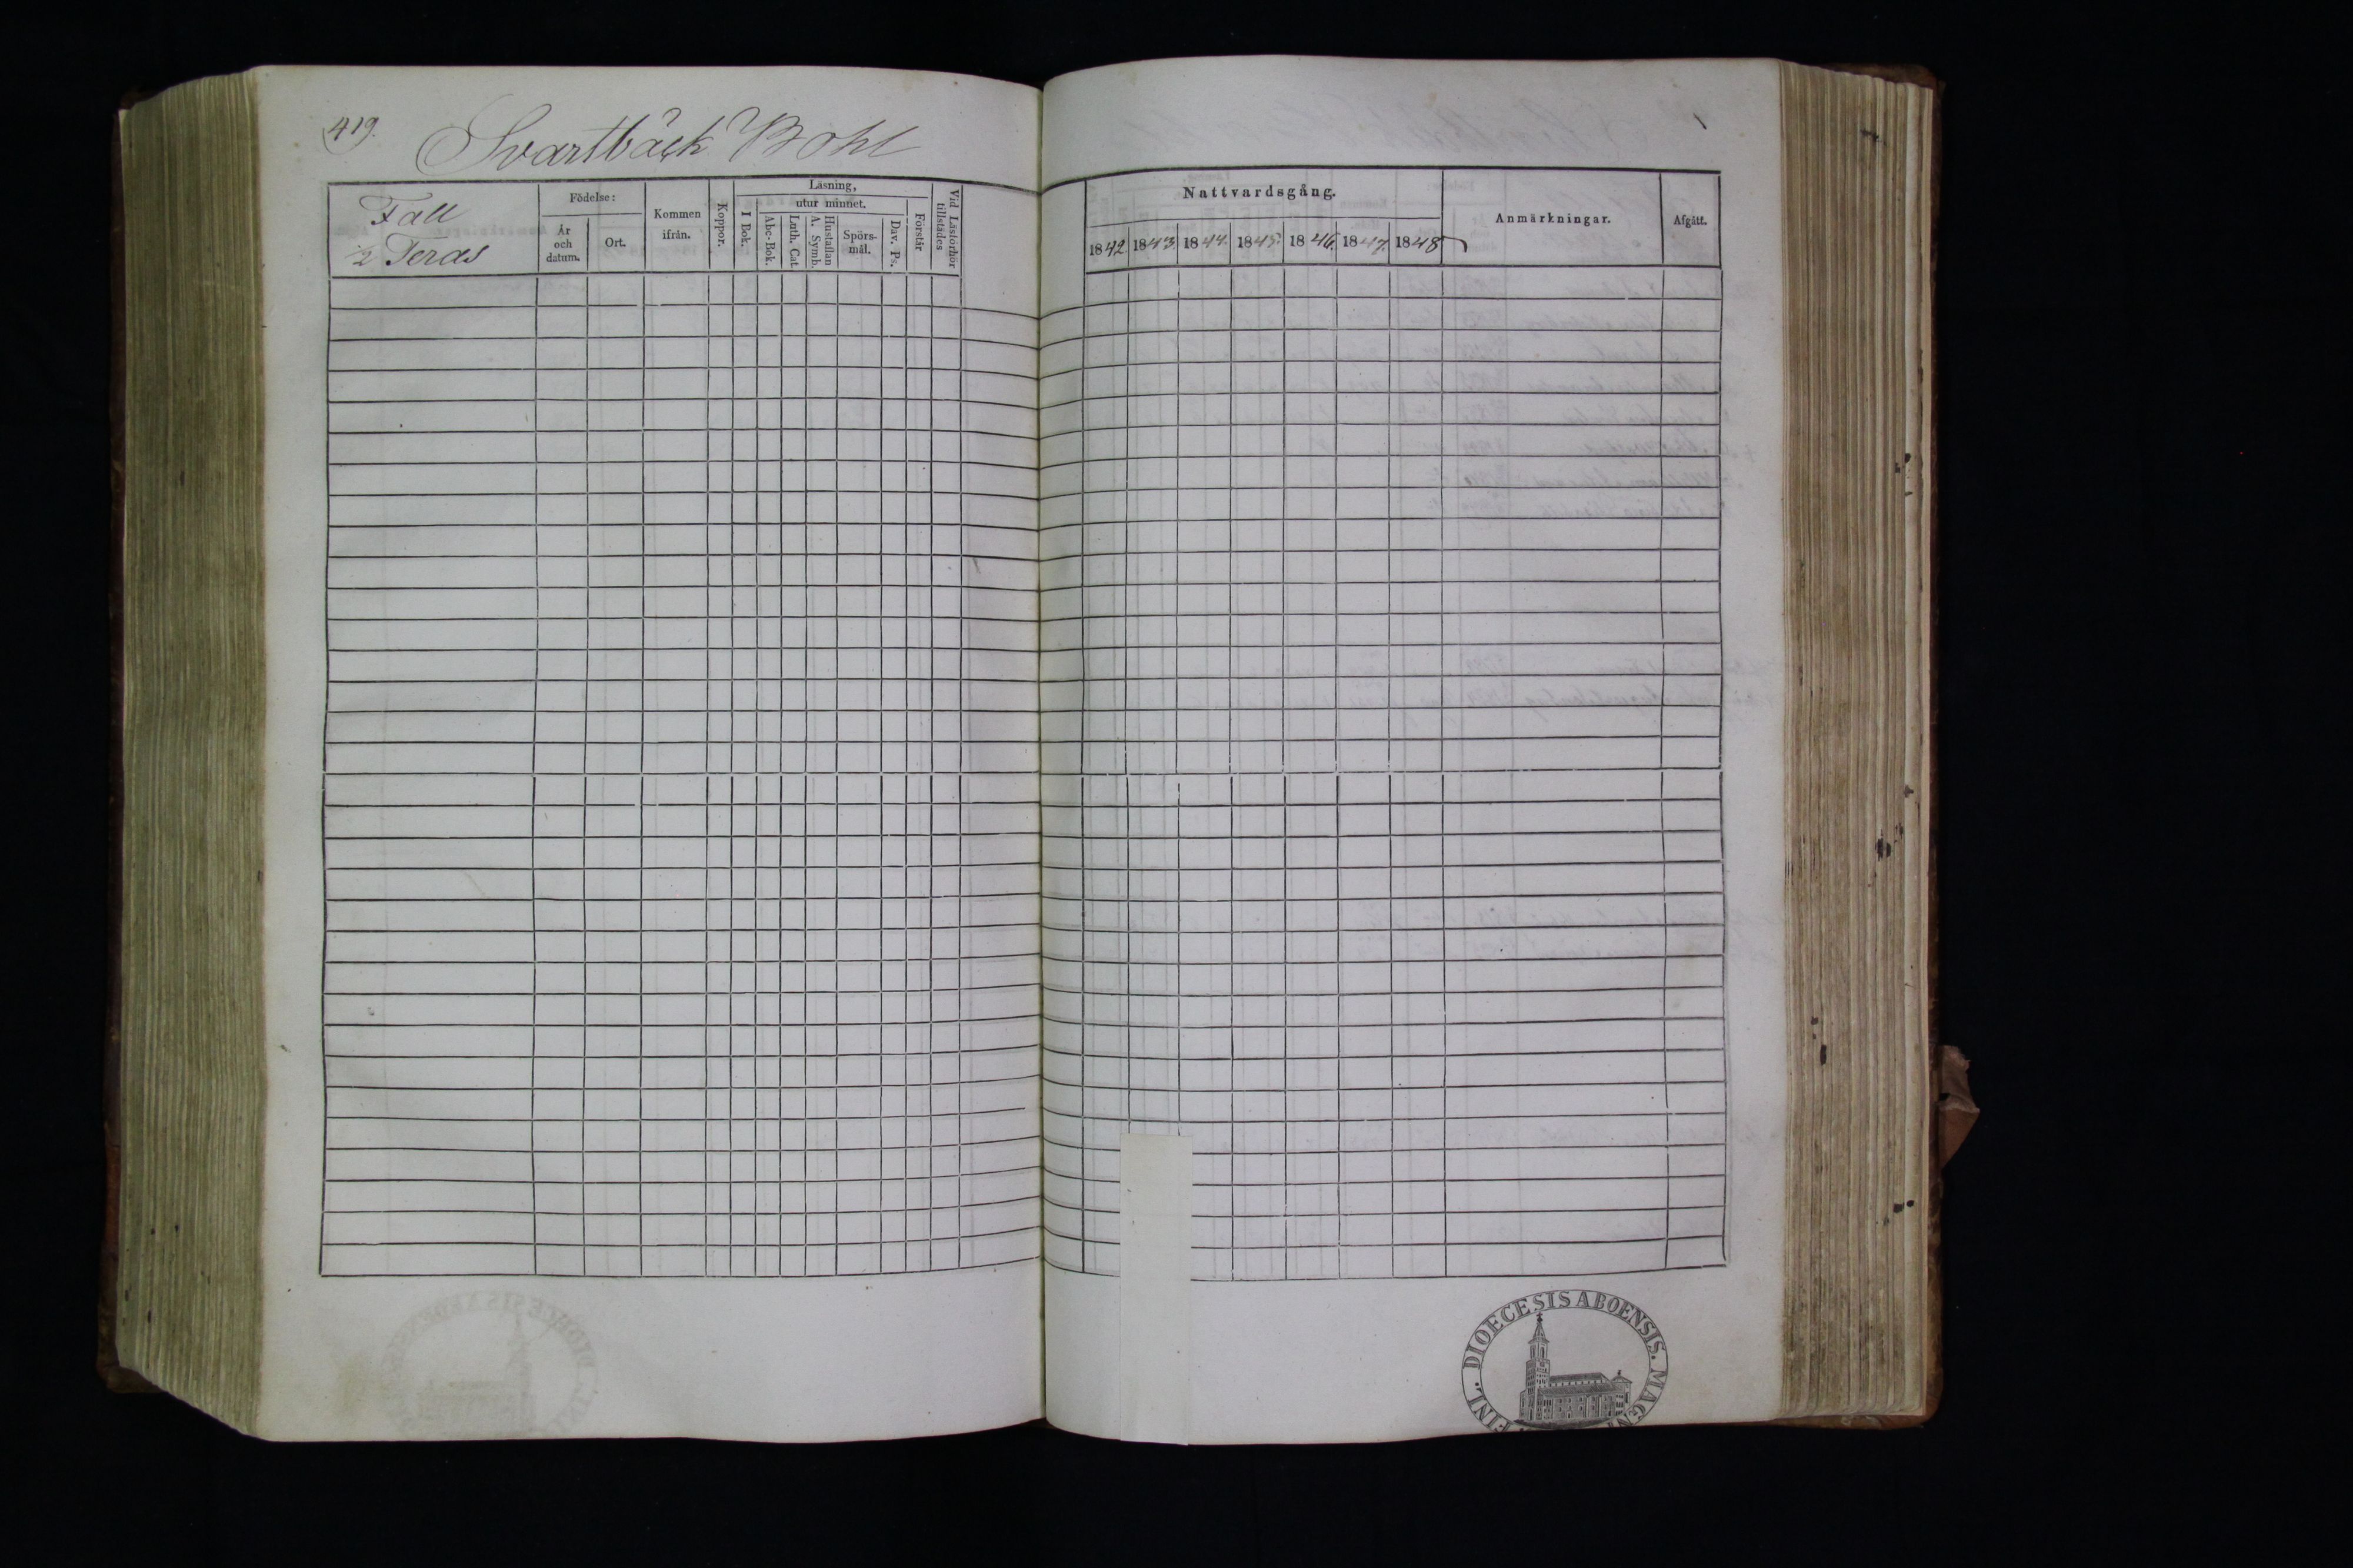 419.
Svartbäck Bohl
Fall
1/2 Teras
Födelse:
År och datum.
Ort.
Kommen ifrån.
Koppor.
Läsning,
I Bok.
utur minnet.
Abc-Bok.
Luth. Cat.
Hustaflan A. Symb.
Spörs-mål.
Dav. Ps.
Förstår
Vid Läsförhör tillstädes
Nattvardsgång.
1842. 1843 1844. 1845. 1846. 1847. 1848
Anmärkningar.
Afgått.
FINL. DIOECESIS ABOENSIS. MAGN